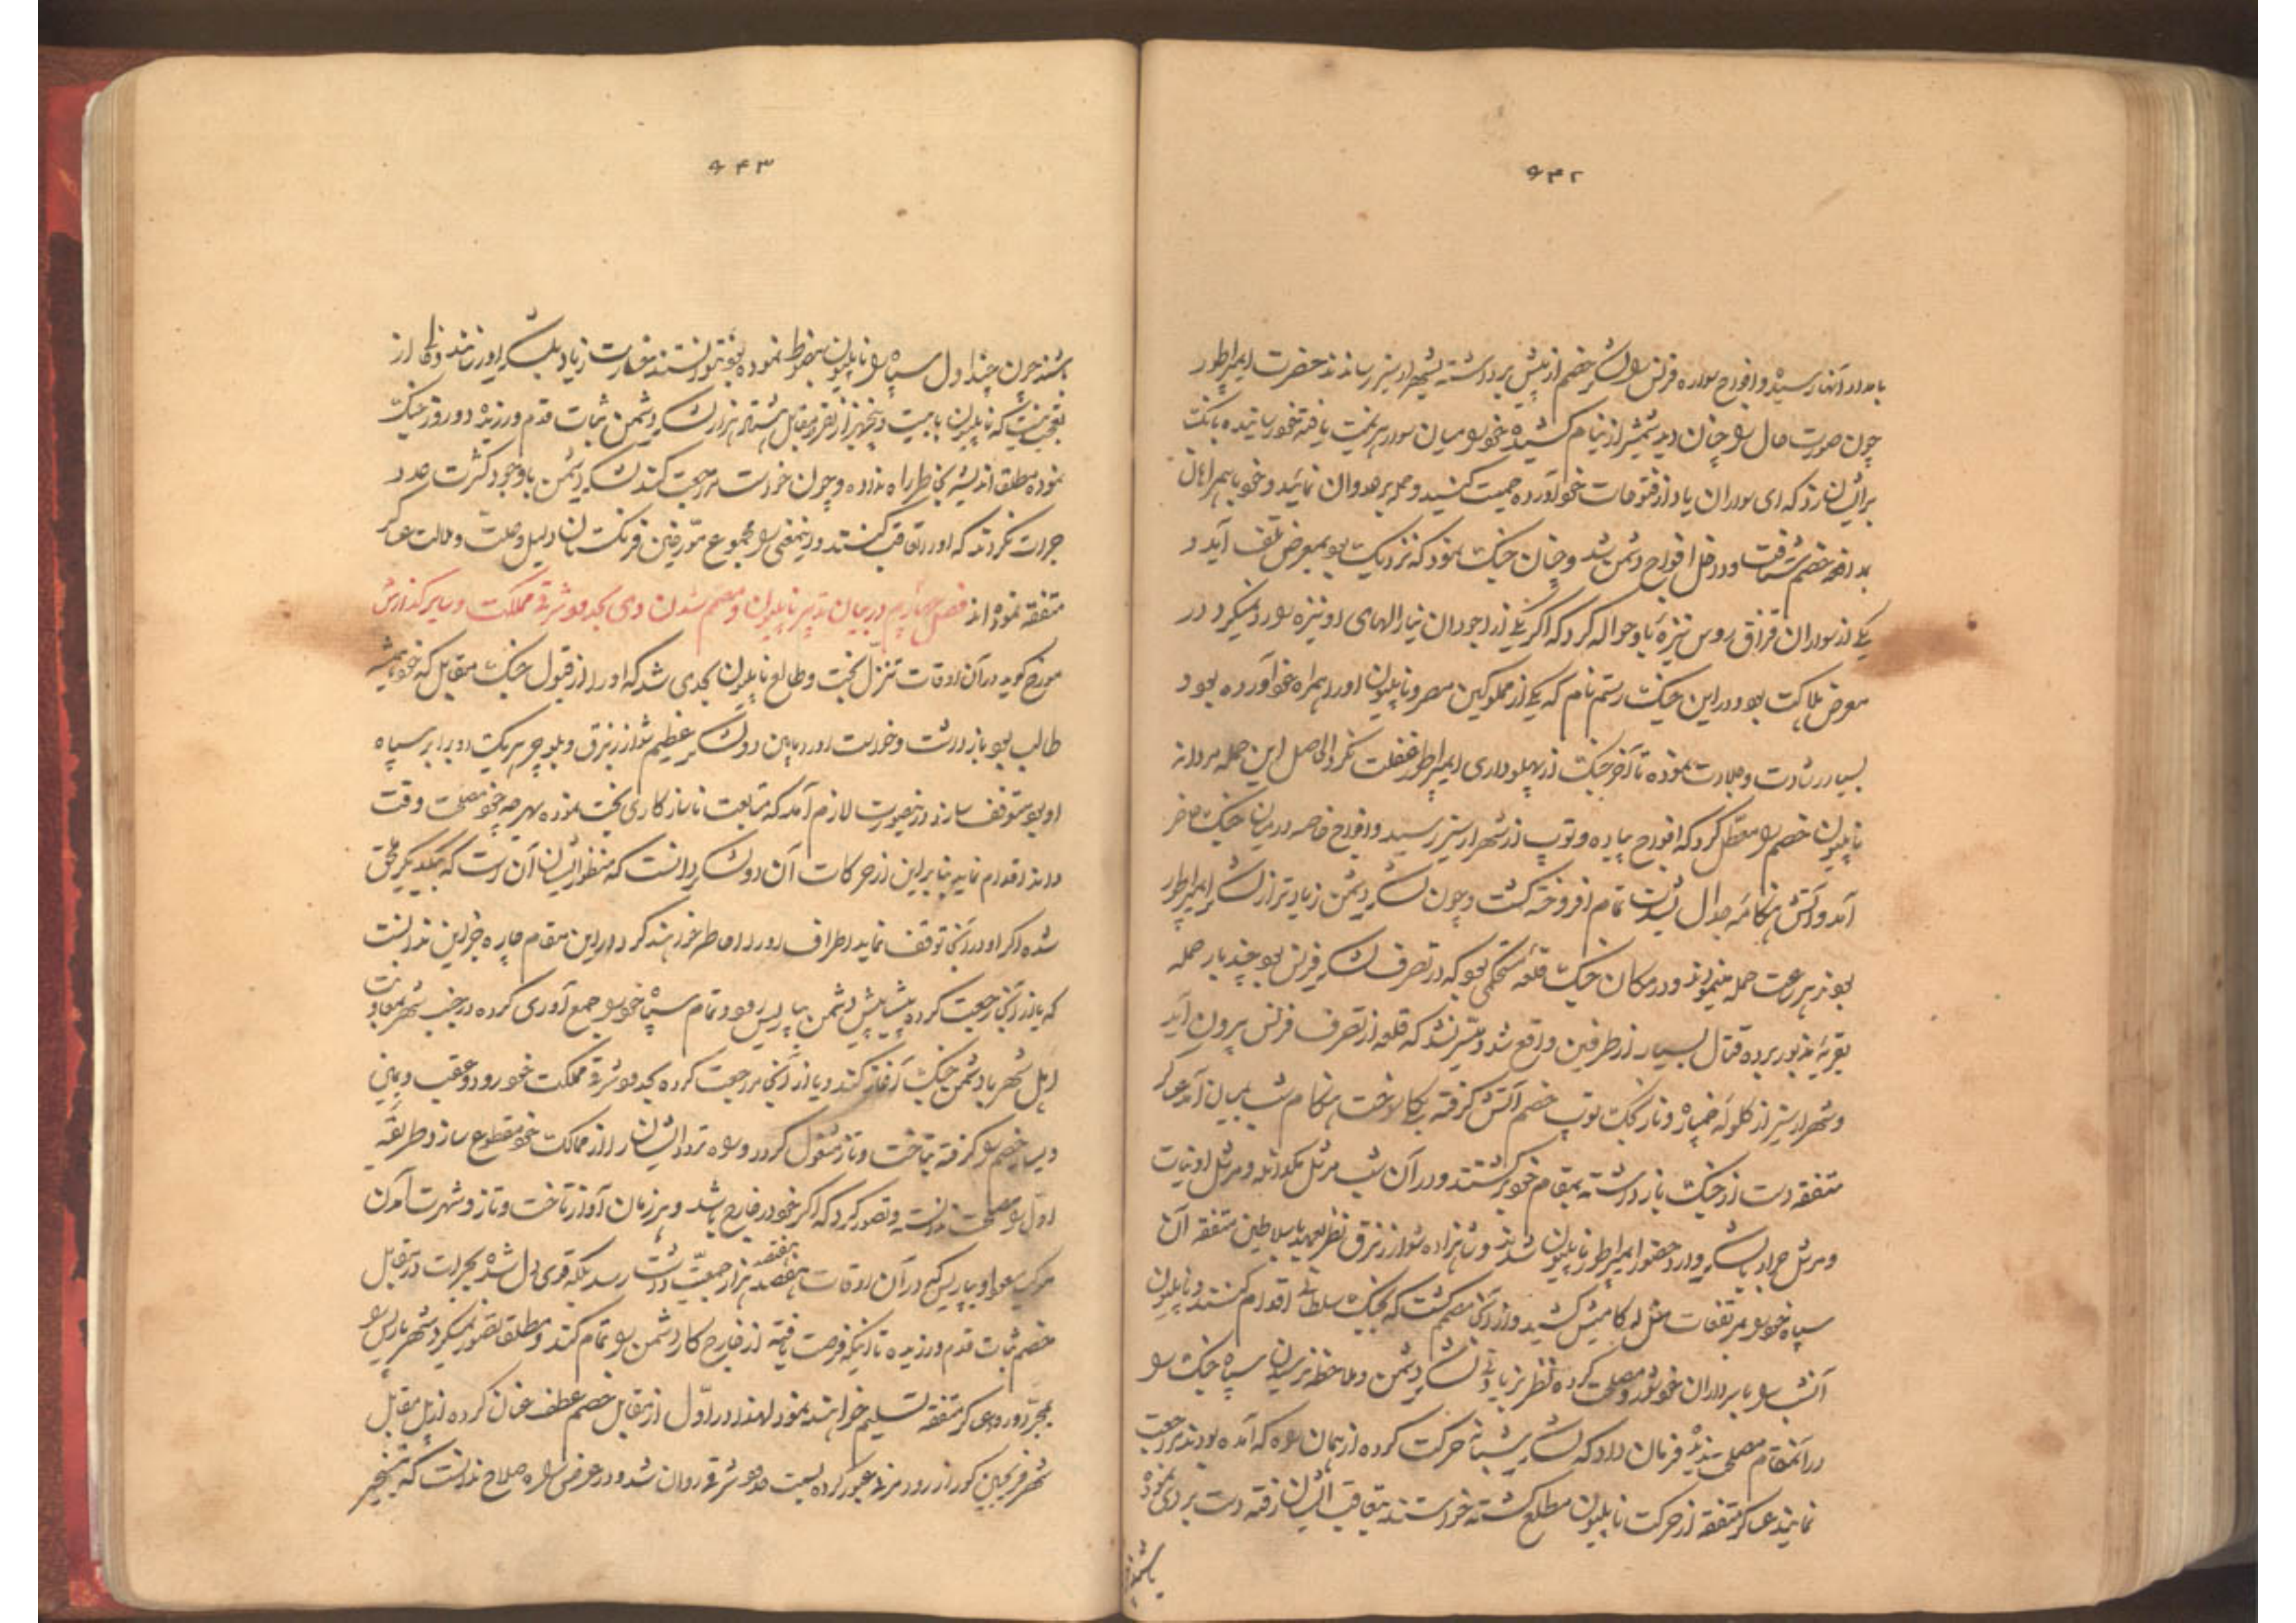 ۶۴۲
بامداد آنها رسیده و افواج سواره فرنس سواران خصم از پیش برداشته بشهر ارسیز رساندند حضرت ایمپراطور
چون صورت حال را چنان دید شمشیر از نیام کشیده خود را میان سواران هزیمت یافته خود رسانیده بانک
برایشان زد که ای سواران یاد از فتوحات خود آورده جمعیت کنید و حمله بر عدوان نمائید و خود با همراهان
بمدافعه خصم شتافت و داخل افواج دشمن شد و چنان جنک نمود که نزدیک بود بمعرض تلف آید و
یکی از سواران قزاق روس نیزه باو حواله کرد که اگر یکی از اجودان نیارالهای او نیزه را رد نمیکرد در
معرض هلاکت بود و در این جنک رستم نام که یکی از مملوکین مصر و ناپلیون او را همراه خود آورده بود
بسیار رشادت و جلادت نموده تا آخر جنک از پهلوداری ایمپراطور غفلت نکرد الحاصل این حمله مردانه
ناپلیون خصم را معطل کرد که افواج پیاده و توپ از شهر ارسیز رسید و افواج خاصه در میان جنک حاضر
آمد و آتش هنکامه جدال بشدت تمام افروخته کشت و چون لشکر دشمن زیادتر از لشکر ایمپراطور
بودند بسرعت حمله مینمودند و در مکان جنک قلعه مستحکمی بود که در تصرف لشکر فرنس بود چند بار حمله
بقریه مزبور برده قتال بسیار از طرفین واقع شد و میسر نشد که قلعه از تصرف فرنس بیرون آید
و شهر ارسیز از کلوله خمپاره و نارنجک توپ خصم آتش کرفته بکلی سوخت هنکام شب بمیان آمد عساکر
متفقه دست از جنک بازداشته بمقام خود برکشتند و در آن شب مرشل مکدانلد و مرشل اودینات
و مرشل جرارد با لشکر وارد حضور ایمپراطور ناپلیون شدند و شاهزاده شوارزنبرق نظر بعهد با سلاطین متفقه آن
سپاه خود را بر مرتفعات مثل لوکامینش کشید و از آنجا مصمم کشت که بجنک سلطانی اقدام کنند و ناپلیون
آنشب را با سرداران خود شور و مصلحت کرده نظر بزیادتی لشکر دشمن و ملاحظه نرسیدن سپاه جنک را
در آنمقام مصلحت ندیده فرمان داد که لشکر شبانه حرکت کرده از همان راه که آمده بودند مراجعت
نمایند عساکر متفقه از حرکت ناپلیون مطلع کشته خواستند بتعاقب ایشان رفته دست بردی نموده
باشند
۶۴۳
باشند چون چنداول سپاه را ناپلیون مضبوط نموده بود نتوانستند خسارت زیاد بلشکر او رسانند و از
تعجب اینست که ناپلیون با جمعیت و پنجهزار نفر در مقابل هشتاد هزار لشکر دشمن ثبات قدم ورزیده دو روز جنک
نموده مطلقا اندیشه بخاطر راه نداده و چون خواست مراجعت کند لشکر دشمن با وجود کثرت عدد
جرات نکردند که او را تعاقب کنند و اینمعنی را مجموع مورخین فرنکستان دلیل و علت و ملالت عساکر
متفقه نموده‌اند فصل چهارم در بیان تدبیر ناپلیون و مصمم شدن وی بحدود شرقی مملکت و سایر کذارش
مورخ کوید در آن اوقات تنزل بخت و طالع ناپلیون بحدی شد که او را از قبول جنک مقابل که خود همیشه
طالب بود بازداشت و خواست او را مابین دو لشکر عظیم شوارزنبرق و بلوچر هر یک دو برابر سپاه
او بود متوقف سازد در اینصورت لازم آمد که متابعت ناسازکاری بخت نموده بهر چه خود مصلحت وقت
داند اقدام نماید بنابراین از حرکات آن دو لشکر دانست که منظور ایشان آن است که بیکدیکر ملحق
شده اکر او در آنجا توقف نماید اطراف او را احاطه خواهند کرد در این مقام چاره جز این ندانست
که یا از آنجا رجعت کرده پیشاپیش دشمن بپاریس رود و تمام سپاه خود را جمع آوری کرده در جنب شهر بمعاونت
اهل شهر با دشمن جنک آغاز کند و یا از آنجا مراجعت کرده بحدود شرقی مملکت خود رود و عقب و یمین
و یسار خصم را کرفته بتاخت و تاز مشغول کردد و راه تردد ایشان را از ممالک خود مقطوع سازد طریقه
اول را مصلحت ندانست و تصور کرد که اکر خود در خارج باشد و هر زمان آواز تاخت و تاز و شهرت آمدن
موکب او بپاریس که در آن اوقات هفتصد هزار جمعیت داشت رسد بلکه قوی دل شده بجرات در مقابل
خصم ثبات قدم ورزیده تا اینکه فرصت یافته از خارج کار دشمن را تمام کند و مطلقا تصور نمیکرد شهر پاریس را
بمجرد ورود عساکر متفقه تسلیم خواهند نمود لهذا در اول از مقابل خصم عطف عنان کرده از پل مقابل
شهر فریجین کور از رود مزبور عبور کرده بسمت حدود شرقی روان شد و در عرض راه صلاح ندانست که بتسخیر